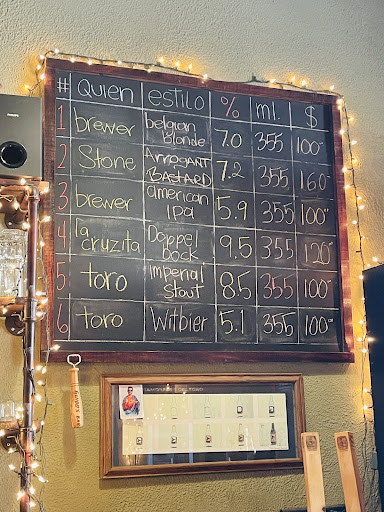 # Quien estilo % ml. $
1 brewer belgian blonde 7.0 355 100
2 Stone ARROGANT BASTARD 7.2 355 160
3 brewer american ipa 5.9 355 100
4 la cruzita Doppel bock 9.5 355 120
5 toro Imperial Stout 8.5 355 100
6 toro Witbier 5.1 355 100